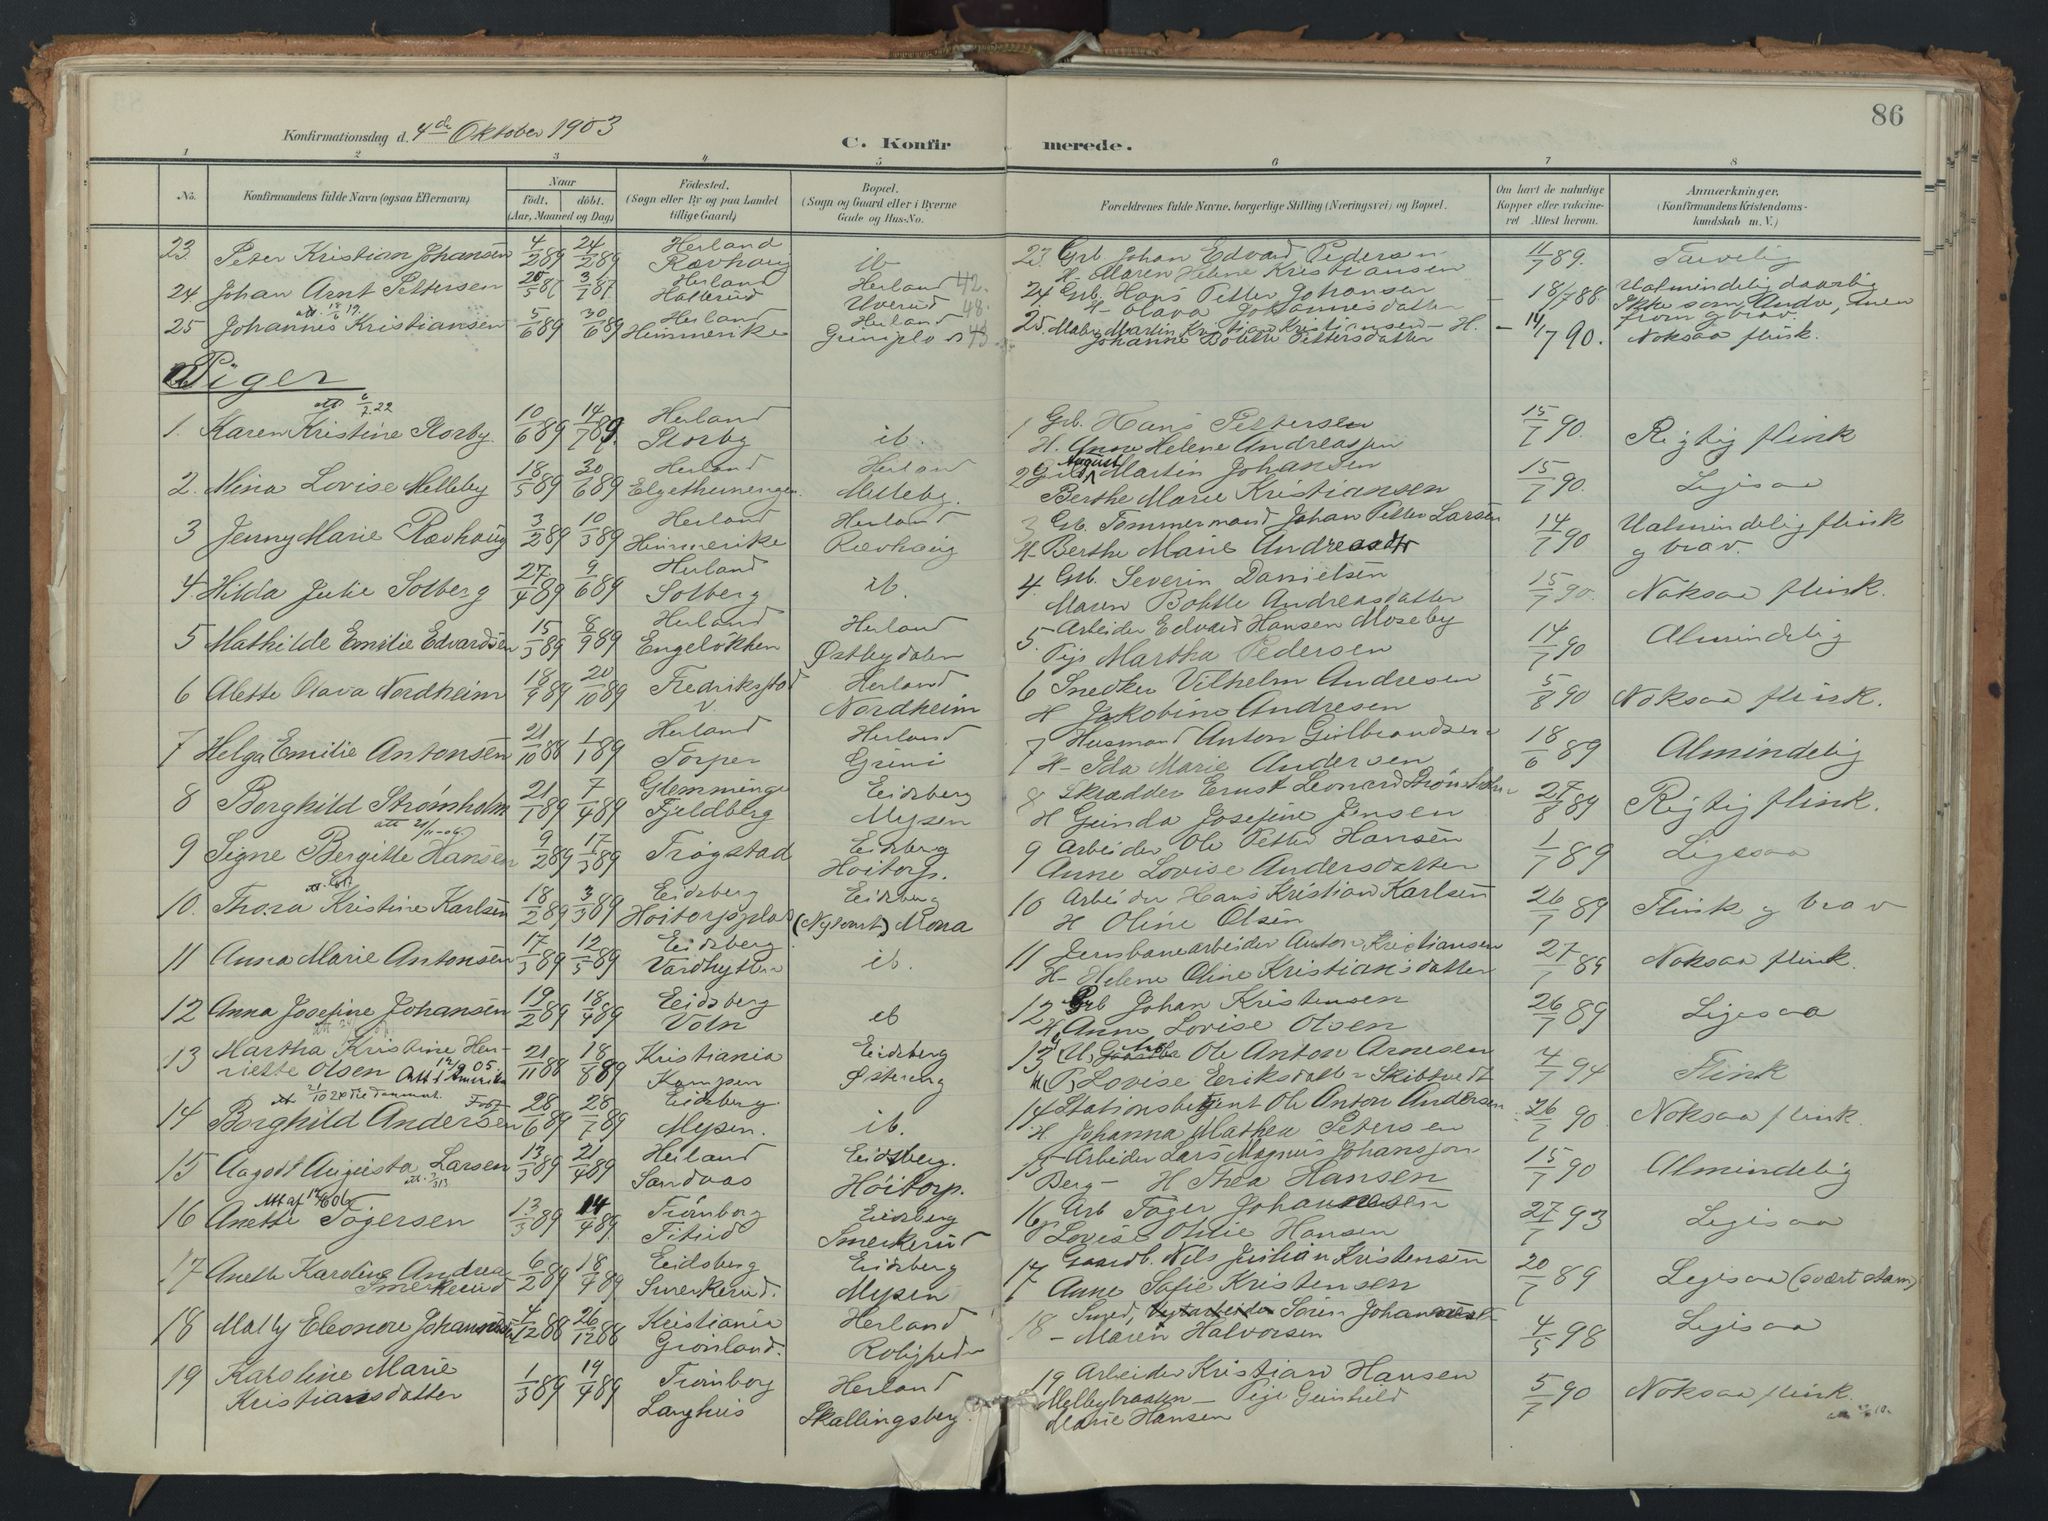 86
Konfirmationsdag d. 4de Oktober 1903
C. Konfirmerede.
1 2 3 4 5 6 7 8
No. Konfirmandens fulde Navn (ogsaa Efternavn) Naar Født. døbt. (Aar, Maaned og Dag) Fødested. (Sogn eller By og paa Landet tillige Gaard) Bopæl. (Sogn og Gaard eller i Byerne Gade og Hus-No. Forældrenes fulde Navne, borgerlige Stilling (Næringsvei) og Bopæl. Om havt de naturlige Kopper eller vaccineret Attest herom. Anmærkninger. (Konfirmandens Kristendomskundskab m. V.)
23. Peter Kristian Johansen 4/2 89 24/2 89 Herland Rævhaug ib 23 Grb. Johan Edvard Pedersen H- Maren Helene Kristiansen 11/7 89. Farvelig
24 Johan Arnt Pettersen 20/5 87 3/7 87 Herland Hallerud Herland 42. Uverud 48. 24 Grb. Hans Petter Johansen H- Olava Johannesdatter - 18/7 88 Ualmindelig daarlig Ikke som Andre, men from og brav.
25 Johannes Kristiansen 5/6 89 30/6 89 Herland Himmerike Herland 25. Martin Kristian Kristiansen - H. Johanne Bolette Pettersdatter - 14/7 90. Noksaa flink.
Piger
att. 6/7.22
1. Karen Kristine Storby. 10/6 89 14/7 89. Herland Storby ib. 1 Grb. Hans Pettersen H. Anne Helene Andreassen 15/7 90. Rigtig flink
2. Mina Lovise Melleby 18/5 89 30/6 89 Herland Herland Melleby. 2 August Martin Johansen Berthe Marie Kristiansen 15/7 90. Ligesaa
3 Jenny Marie Rævhaug 3/2 89 10/3 89 Herland Himmerike Herland Rævhaug 3 Grb. Tømmermand Johan Petter Larsen H- Berthe Marie Andreasdtr 14/7 90 Ualmindelig flink og brav.
4. Hilda Julie Solberg 27/4 89 9/6 89 Herland Solberg ib. 4. Grb. Severin Danielsen Maren Bolette Andreasdatter 15/7 90. Noksaa flink.
5 Mathilde Emilie Edvardsen 15/5 89 8/9 89 Herland Engeløkken Herland Østbydalen 5. Arbeider Edvard Hansen Moseby Pige Martha Pedersen 14/7 90 Almindelig
6 Alette Olava Nordheim 18/9 89 20/10 89 Fredrikstad Herland Nordheim 6 Snedker Vilhelm Andresen H Jakobine Andresen 5/8 90 Noksaa flink.
7 Helga Emilie Antonsen 21/10 88 1/1 89 Herland Torper Herland Grini 7 Husmand Anton Gulbrandsen H- Ida Marie Andersen 18/6 89 Almindelig
8 Borghild Strømholm 21/1 89 7/4 89 Glemminge Fjeldberg Eidsberg Mysen 8 Skrædder Ernst Leonard Strømholm H Gunda Josefine Jensen 27/8 89 Rigtig flink.
att 21/11-06
9 Signe Bergitte Hansen 9/2 89 17/3 89 Trøgstad Eidsberg Hoitorp. 9 Arbeider Ole Petter Hansen Anne Lovise Andersdatter 1/7 89 Ligesaa
10. Thora Kristine Karlsen 18/2 89 3/3 89 Eidsberg Hoitorpsplads Eidsberg (Nykaast) Mona 10 Arbeider Hans Kristian Karlsen H Oline Olsen 26/7 89 Flink og brav
11 Anna Marie Antonsen 17/3 89 12/5 89 Eidsberg Vardhytten ib. 11 Jernbanearbeider Anton Kristiansen H- Helene Oline Kristiansdatter 27/7 89 Noksaa flink.
12 Anna Josefine Johansen 19/2 89 18/4 89 Eidsberg Voln ib 12 Grb Johan Kristensen H. Anne Lovise Olsen 26/7 89 Ligesaa
13 Martha Kristine Henriette Olsen 21/11 88 18/8 89 Kristiania Kampen Eidsberg Østereng 13 (U) Ole Anton Arnesen (P) Lovise Eriksdatter Skibtvedt 4/7 94 Flink
Att t Amerika 14/9 05
att 21/10 24 til Danmark.
14 Borghild Andersen 28/6 89 28/7 89 Eidsberg Mysen. ib. 14 Stationsbetjent Ole Anton Andersen H Johanna Mathea Petersen 26/7 90 Noksaa flink.
15 Aagodt Augusta Larsen 13/3 89 21/4 89 Herland Sandaas Eidsberg. Höitorp. 15 Arbeider Lars Magnus Johansson Berg- H Thea Hansen 15/7 90 Almindelig
16 Anette Tøgersen 13/3 89 14/4 89 Trømborg Titrud Eidsberg Smerkerud 16 Arb Tøger Johannesen Lovise Otilie Hansen 27/7 93 Ligesaa
17 Anette Karoline Andrea Smerkerud 6/2 89 18/4 89 Eidsberg Smerkerud. Eidsberg Mysen 17 Gaardb. Nils Julian Kristensen Anne Sofie Kristensen 20/7 89 Ligesaa (svært stam)
18 Mally Eleonore Johannesen 4/12 88 26/12 88 Kristiania Grønland. Herland Rolighede 18 Smed, Søren Johannesen - Maren Halvorsen 4/5 98 Ligesaa
19 Karoline Marie Kristiansdatter 1/3 89 19/4 89 Trømborg Langhus Herland Skallingsberg 19 Arbeider Kristian Hansen Mellbybraaten - Pige Gunhild Marie Hansen 5/7 90 Noksaa flink.